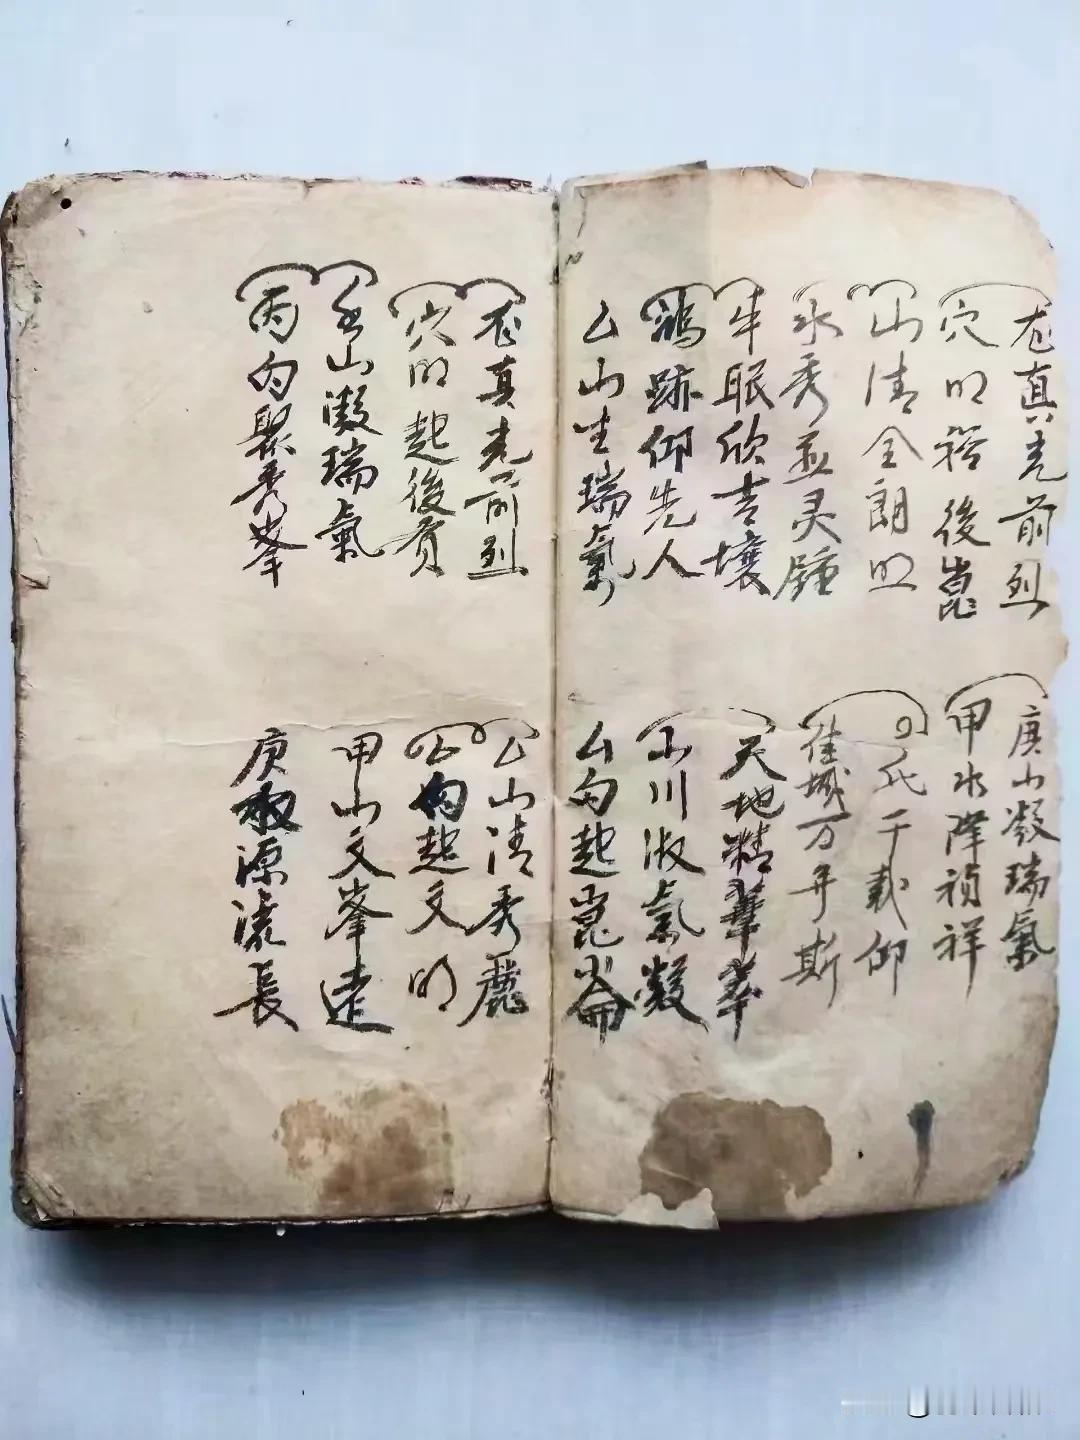 龙真光前烈
穴明裕後崑
山清全朗明
水秀並灵鍾
牛眠欣吉壤
鴻跡仰先人
厶山生瑞氣
庚山凝瑞氣
甲水降禎祥
千载仰
佳城万年斯
天地精華萃
山川淑氣凝
厶向起崑崙
龙真光前烈
穴明起後賢
壬山凝瑞氣
丙向聚秀峯
厶山清秀麗
厶向起文明
甲山文峯远
庚源流長